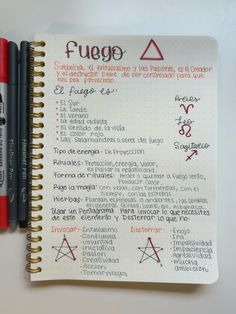 Fuego
Simboliza el entusiasmo y las Pasiones, es el Creador
y el destructor. Debe de ser controlado para que
nos sea provechoso.
El fuego es:
• El Sur
• La tarde
• El verano
• La edad adulta
• El sentido de la vista
• El color rojo
• Las Salamandras o seres del fuego
Aries
Leo
Sagitario
Tipo de energía: Proyección
Rituales: Protección, energía, valor,
Forma de rituales: Mirar o quemar a fuego lento,
Rige la magia: con velas, con Tormentas, con el
tiempo, con las estrellas.
Hierbas:
en general
Usar un Pentagrama Para invocar lo que necesites
de este elemento y Desterrar lo que no.
Invocar:
-Entusiasmo
-Confianza
-voluntad
-iniciativa
-Pasion
-Creatividad
-Accion
-Tomar riesgos
Desterrar:
-Enojo
-Ira
-Impulsividad
-Impaciencia
-Agresividad
-mucha
ambición